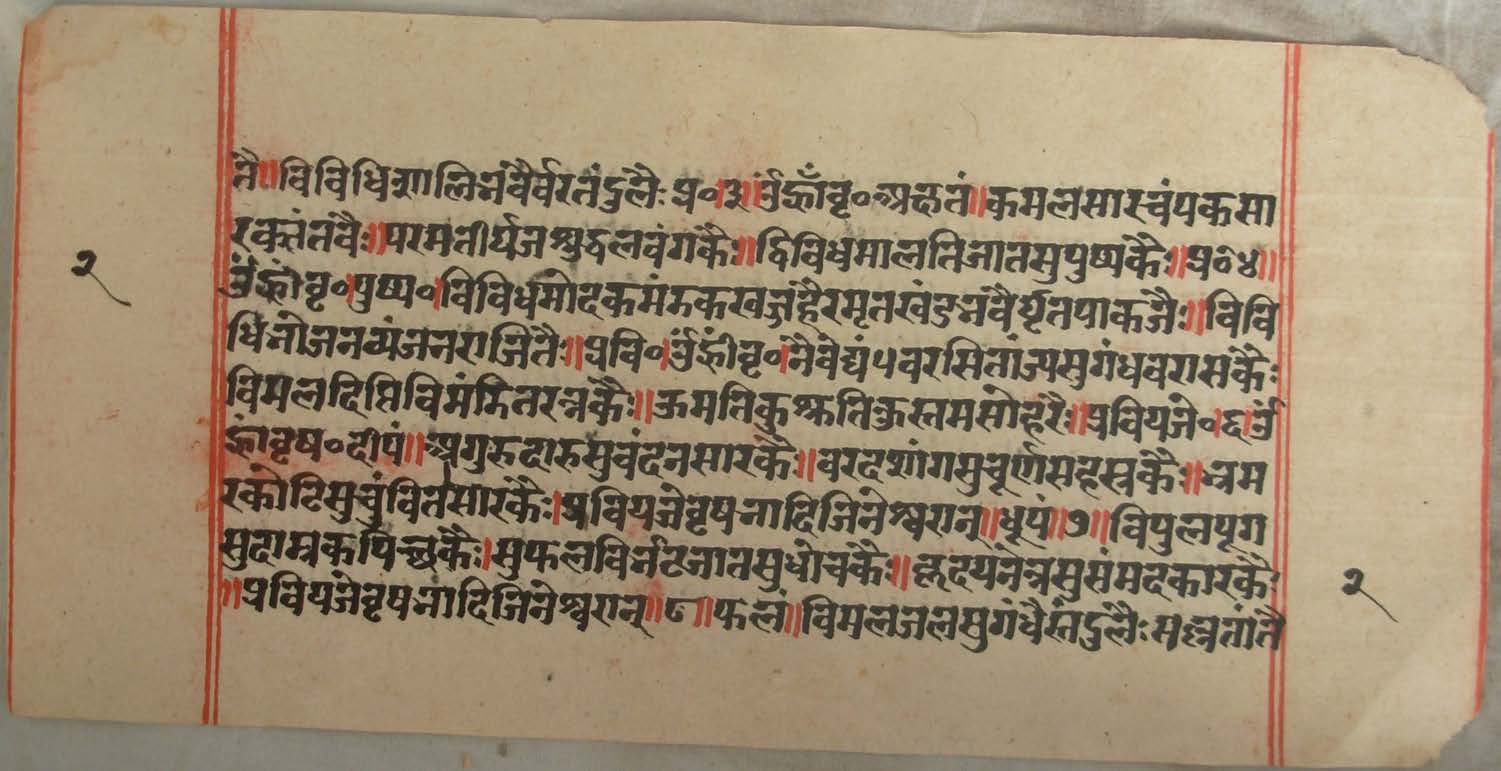 तै॥विविधिशालिभवैर्वरतंदुलैः प्र०।३।ॐह्राँवृ०अक्षतं॥कमलसारचंपकसा
रक्तंतवैः॥परमतीर्थजशुद्धलवंगकैः॥द्विविधमालतिजातसुपुष्पकैः॥प्र०४॥
ॐह्रींवृ०।पुष्प०।विविधमोदकमंडकखज्जहैरमृतखंडभवैर्घृतपाकजैः॥विवि
धिभोजनव्यंजनराजितैः॥प्रवि०।ॐह्रींवृ०।नैवेद्यं५वरसिताज्यसुगंधवरासकैः
विमलदिप्तिविमंडितरत्नकैः॥ऊमतिकुश्रुतिक्रुस्तमसोहरैः॥प्रवियजे०।६।ॐ
ह्रींवृष०दीपं॥अगुरुदारुसुचंदनसारकैः॥वरदशांगसुचूर्णसहस्रकैः॥भ्रम
रकोटिसुचुंवितसारकैः।प्रवियजेवृषभादिजिनेश्वरान्॥धूपं॥७॥विपुलपूग
सुदाम्रकपिच्छकैः।सुफलविर्भटजातसुधोचकैः॥हृदयनेत्रसुसंमदकारकैः
॥प्रवियजेवृषभादिजिनेश्वरान्॥८॥फलं॥विमलजलसुगंधैस्तंदुलैः मक्षतांतै
२
२